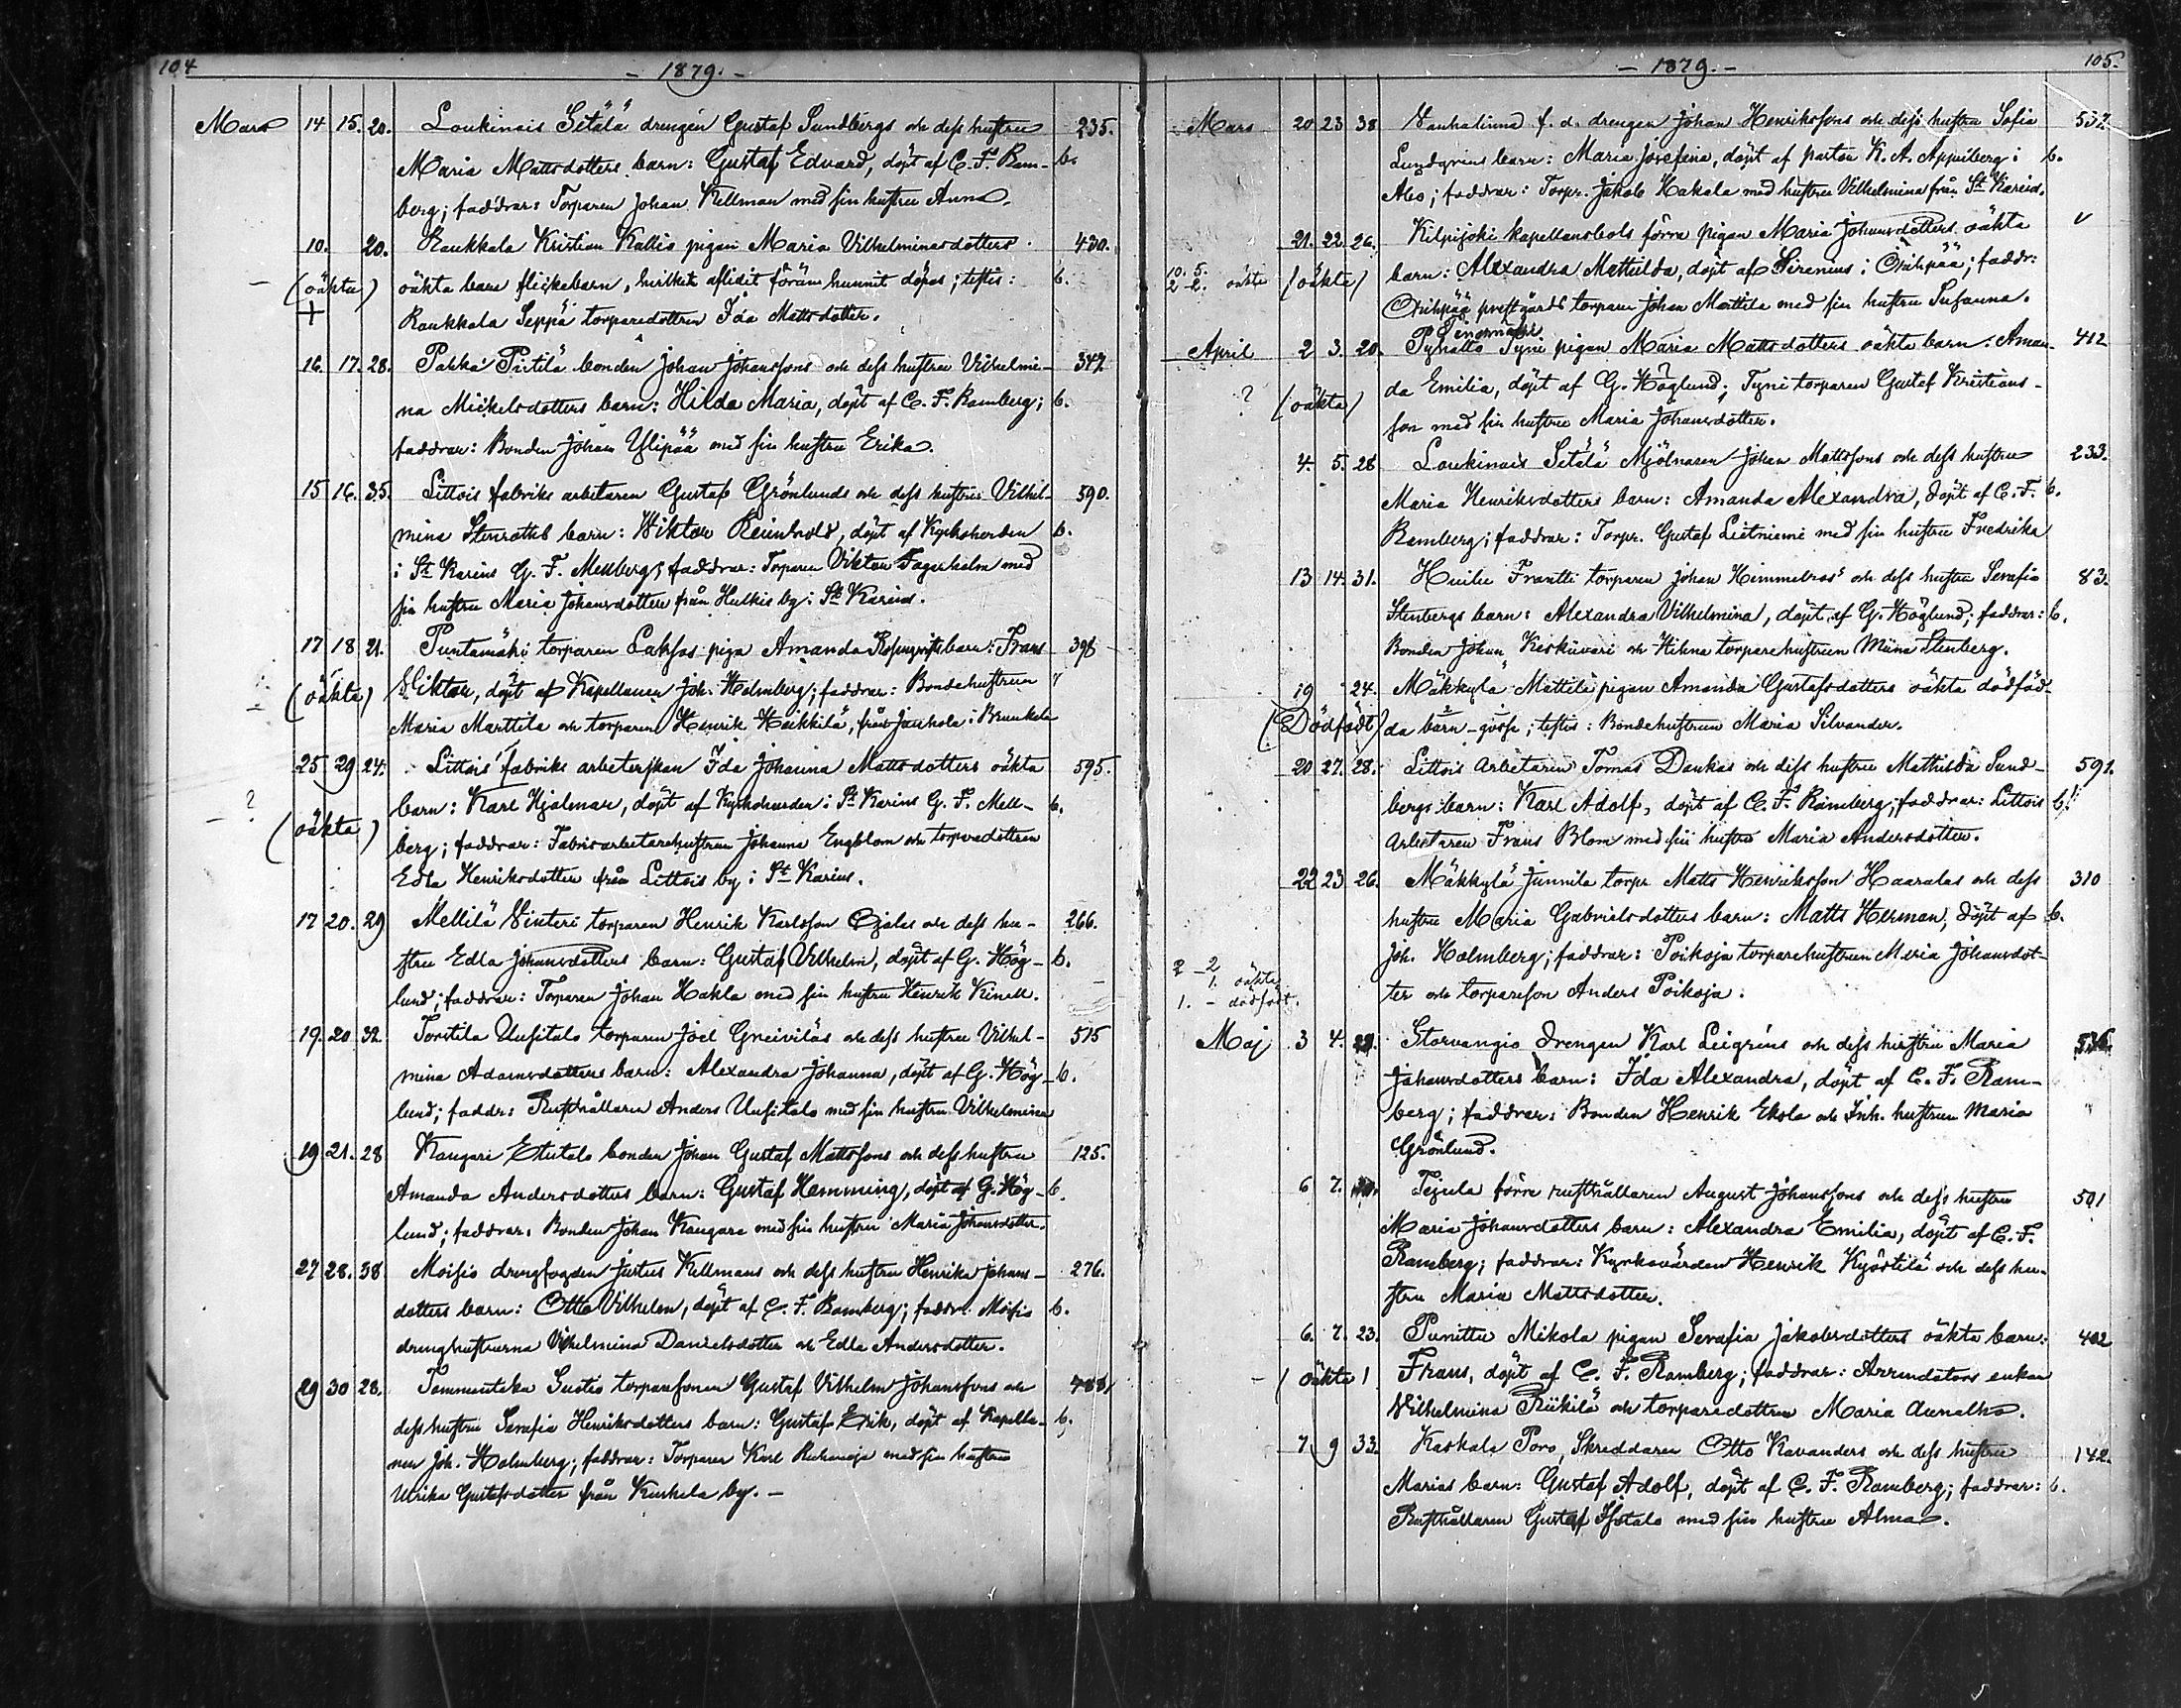 104
- 1879. -
Mars 14 15. 20. Loukinais Sētälä drengen Gustaf Sundbergs och dess hustru 235.
Maria Mattsdotters barn: Gustaf Edvard, döpt af C. F. Ram- b.
berg; faddrar: Torparen Johan Kellman med sin hustru Anna.
10. 20. Raukkala Kristian Kallis pigan Maria Vilhelminasdotters 430.
(oäkta) oäkta barn flickebarn, hvilket aflidit förän hunnit döpas; testis: b.
+ Raukkala Seppä torparedottren Ida Mattsdotter.
16. 17. 28. Pahka Pirtilä bonden Johan Johanssons och dess hustru Vilhelmi- 347.
na Mickelsdotters barn: Hilda Maria, döpt af C. F. Ramberg; b.
faddrar: Bonden Johan Ylipää med sin hustru Erika.
15 16. 35. Littois fabriks arbetaren Gustaf Grönlunds och dess hustrus Vilhel- 590.
mina Stenroths barn: Wiktor Reinhold, döpt af Kyrkoherden b.
i St Karins G. F. Mellberg; faddrar: Torparen Viktor Fagerholm med
sin hustru Maria Johansdotter från Hulkis by i St Karins.
17 18 21. Puntamäki torparen Laksas piga Amanda Rosenqvists barn: Frans 398
(oäkta) Viktor, döpt af Kapellanen Joh. Holmberg; faddrar: Bondehustrun
Maria Marttila och torparen Henrik Heikkilä, från Jauhola i Brunkala
25 29 24. Littois fabriks arbeterskan Ida Johanna Mattsdotters oäkta 595.
? barn: Karl Hjalmar, döpt af Kyrkoherden i St Karins G. F. Mell- b.
(oäkta) berg; faddrar: Fabriksarbetarehustrun Johanna Engblom och torparedottren
Edla Henriksdotter från Littois by i St Karins.
17 20. 29 Mellilä Vinteri torparen Henrik Karlsson Ojalas och dess hu- 266.
stru Edla Johansdotters barn: Gustaf Vilhelm, döpt af G. Hög- b.
lund; faddrar: Torparen Johan Hakla med sin hustru Henrik Kinell.
19. 20 32 Torstila Uusitalo torparen Joel Gneiviläs och dess hustru Vilhel- 515
mina Adamsdotters barn: Alexandra Johanna, döpt af G. Hög- b.
lund; faddr: Rusthållaren Anders Uusitalo med sin hustru Vilhelmina
19 21. 28 Kangari Etutalo bonden Johan Gustaf Mattssons och dess hustru 125.
Amanda Andersdotters barn: Gustaf Hemming, döpt af G. Hög- b.
lund; faddrar: Bonden Johan Kangare med sin hustru Maria Johansdotter.
27 28. 38 Moisio drengfogden Justus Kellmans och dess hustru Henrika Johans- 276.
dotters barn: Otto Vilhelm, döpt af C. F. Ramberg; faddr: Moisio b.
drenghustrurna Vilhelmina Danielsdotter och Edla Andersdotter.
29 30 28. Tammenteka torparesonen Gustaf Vilhelm Johanssons och
dess hustru Serafia Henriksdotters barn: Gustaf Erik, döpt af Kapella- b.
nen Joh. Holmberg; faddrar: Torparen Karl med sin hustru
Ulrika Gustafsdotter från Kuskela by. -
105.
- 1879. -
Mars 20 23 38 Vanhalinna f. d. drengen Johan Henrikssons och dess hustru Sofia 537
Lundgrens barn: Maria Josefina, döpt af pastor K. A. Appelberg i b.
Åbo; faddrar: Torpr. Jakob Hakala med hustru Vilhelmina från St Karins.
21. 22. 26. Kilpijoki kapellansbols förra pigan Maria Johansdotters oäkta v
10. 5. 2-2. oäkta (oäkta) barn: Alexandra Mathilda, döpt af Sirenius i Oripää; faddr:
Oripää prestgårds torpare Johan Marttila med sin hustru Susanna.
April 2 3. 20. Pyhältö Tyni pigan Maria Mattsdotters oäkta barn: Aman- 412
? (oäkta) da Emilia, döpt af G. Höglund; Tyni torparen Gustaf Kristians-
son med sin hustru Maria Johansdotter.
4. 5. 28 Loukinais Setälä Mjölnaren Johan Mattssons och dess hustru 233.
Maria Henriksdotters barn: Amanda Alexandra, döpt af C. F. b.
Ramberg; faddrar: Torpr. Gustaf Lietniemi med sin hustru Fredrika
13 14. 31. Huilu Frantti torparen Johan Himmelros' och dess hustru Serafia 83.
Stenbergs barn: Alexandra Vilhelmina, döpt af G. Höglund; faddrar: b.
Bonden Johan Keskivari och Hihna torparehustrun Miina Stenberg.
19 24. Mäkkylä Mattila pigan Amanda Gustafsdotters oäkta dödföd-
(Dödfödt) da barn-gosse; testis: Bondehustrun Maria Silvander.
20 27. 28. Littois Arbetaren Tomas Daukas och dess hustru Mathilda Sund- 591.
bergs barn: Karl Adolf, döpt af C. F. Ramberg; faddrar: Littois b.
Arbetaren Frans Blom med sin hustru Maria Andersdotter.
22 23 26. Mäkkylä Junnila torpr Matts Henriksson Haaralas och dess 310
hustru Maria Gabrielsdotters barn: Matts Herman, döpt af b.
2-2 Joh. Holmberg; faddrar: Poikoja torparehustrun Maria Johansdot-
1. oäkta
1. - dödfödt. ter och torpareson Anders Poikoja.
Maj 3 4. 29. Storvangio drengen Karl Leigrens och dess hustru Maria 536.
Johansdotters barn: Ida Alexandra, döpt af C. F. Ram-
berg; faddrar: Bonden Henrik Ekola och Inh. hustrun Maria
Grönlund.
6 7. Tejula förre rusthållaren August Johanssons och dess hustru 501
Maria Johansdotters barn: Alexandra Emilia, döpt af C. F.
Ramberg; faddrar: Kyrkovärden Henrik Kyöstilä och dess hu-
stru Maria Mattsdotter.
6. 7. 23. Punittu Mikola pigan Serafia Jakobsdotters oäkta barn: 402
(oäkta) Frans, döpt af C. F. Ramberg; faddrar: Arrendators enkan
Vilhelmina Riikilä och torparedottren Maria Aunalho.
7 9 33. Kaskala Poro, Skreddaren Otto Kavanders och dess hustru 142.
Marias barn: Gustaf Adolf, döpt af C. F. Ramberg; faddrar: b.
Rusthållaren Gustaf Isotalo med sin hustru Alma.